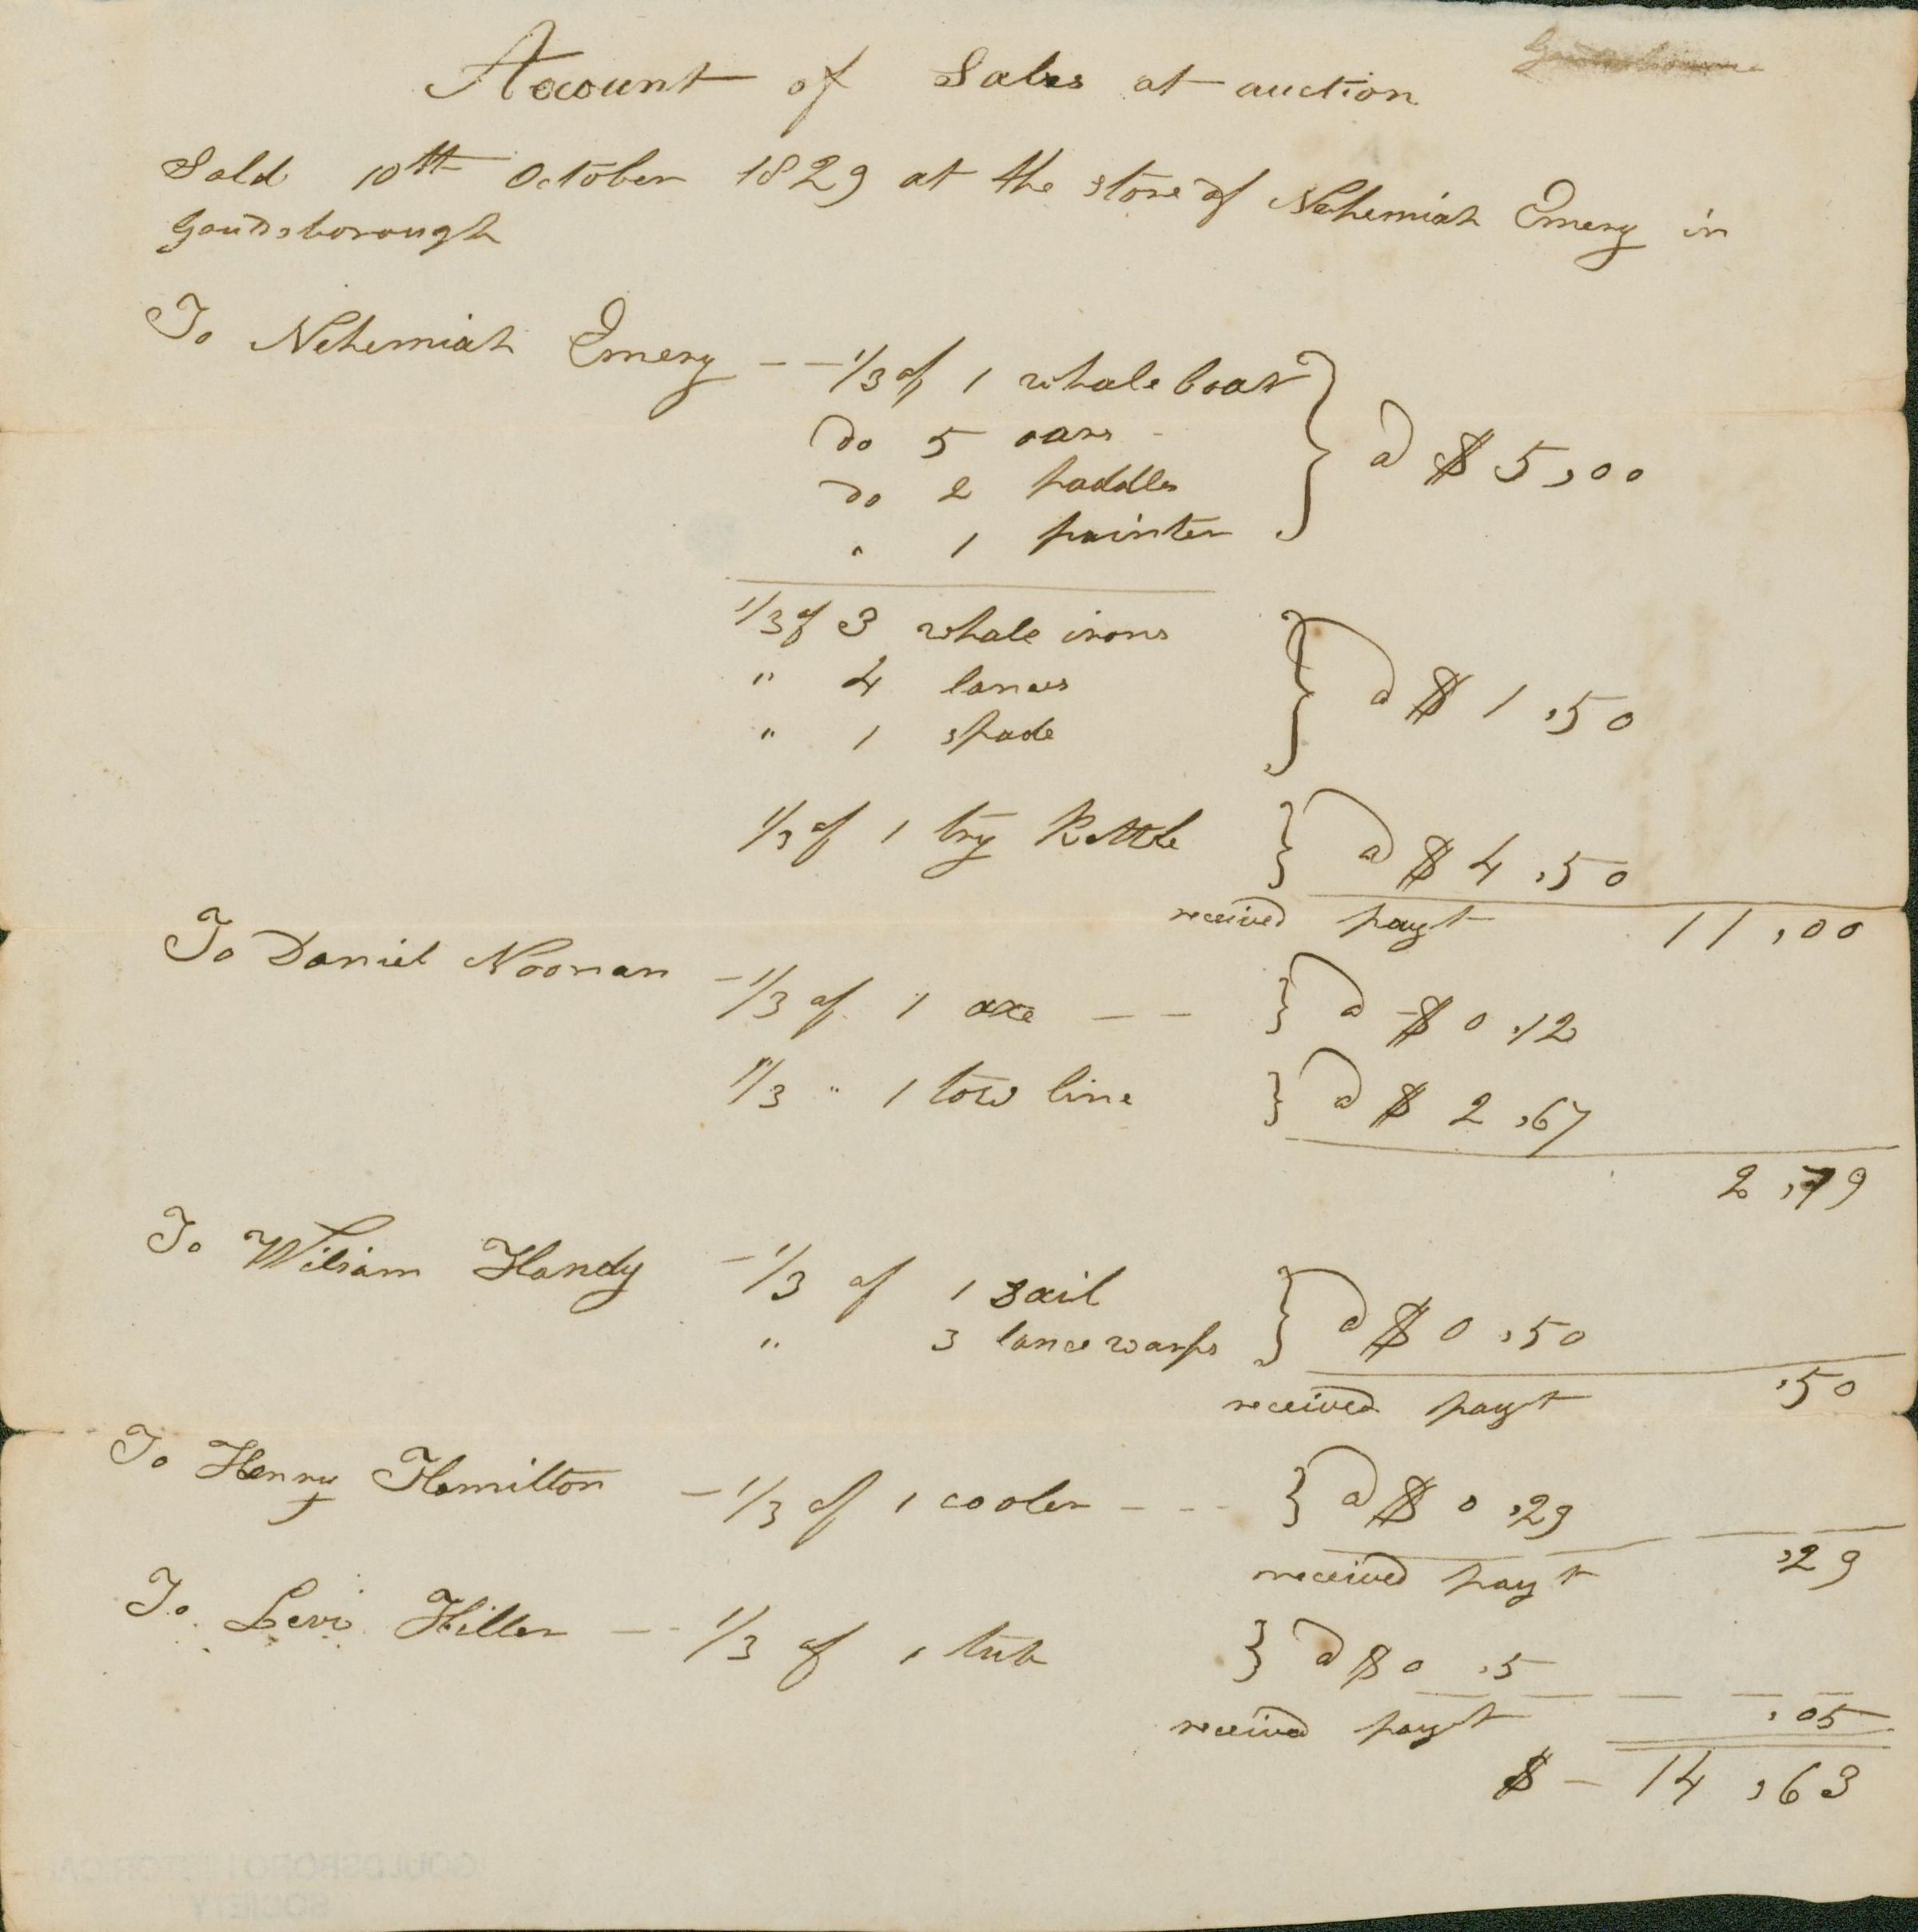 Account of Sales at auction
Sold 10th October 1829 at the store of Nehemiah Emery in
Gouldsborough
To Nehemiah Emery -- 1/3 of 1 whale boat } a $ 5,00
do 5 oars -
do 2 paddles
" 1 painter
1/3 of 3 whale irons } a $ 1,50
" 4 lances
" 1 spade
1/3 of 1 try Kettle } a $ 4,50
received payt 11,00
To Daniel Noonan - 1/3 of 1 axe -- } a $ 0,12
1/3 " 1 tow line } a $ 2,67
2,79
To Wiliam Handy - 1/3 of 1 sail } a $ 0,50
" 3 lance warps
received payt ,50
To Henry Hamilton - 1/3 of 1 cooler --- } a $ 0,29
received payt ,29
To Levi Hiller -- 1/3 of 1 tub } a $ 0,5
received payt ,05
$ - 14,63
GOULDSBORO HISTORICAL
SOCIETY